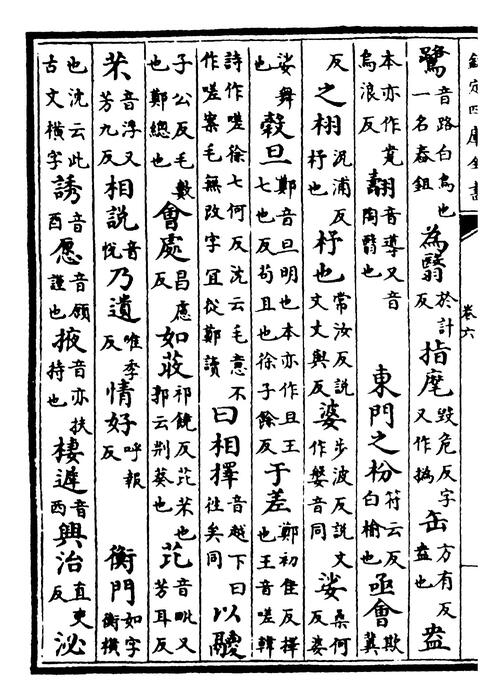 欽定四庫全書
卷六
鷺音路白鳥也一名舂鉏為翳於計反指麾毀危反字又作撝缶方有反盎也盎
本亦作瓽烏浪反翿音導又音陶翳也 東門之枌符云反白榆也亟會欺冀
反之栩況浦反杼也杼也常汝反說文丈與反婆步波反說文作媻音同娑桑何反婆
娑舞也榖旦鄭音旦明也本亦作且王七也反苟且也徐子餘反于差鄭初佳反擇也王音嗟韓
詩作嗟徐七何反沈云毛意不作嗟案毛無改字宜從鄭讀曰相擇音越下曰往矣同以鬷
子公反毛數也鄭總也會處昌慮反如荍祁饒反芘芣也郭云荆葵也芘音毗又芳耳反
芣音浮又芳九反相說音悅乃遺唯季反情好呼報反 衡門如字衡橫
也沈云此古文橫字誘音酉愿音願謹也掖音亦扶持也棲遲音西興治直吏反泌